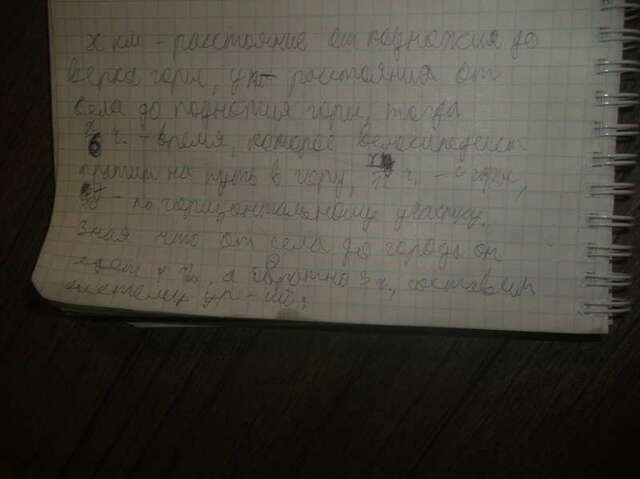 x км - расстояние от подножия до
верха горы, y км расстояния от
села до подножия горы, тогда
x/6 ч. - время, которое велосипедист
тратит на путь в гору, x/12 ч. - с горы,
- по горизонтальному участку.
Зная что от села до города он
едет ч, а обратно 3 ч, составим
систему ур-ий: